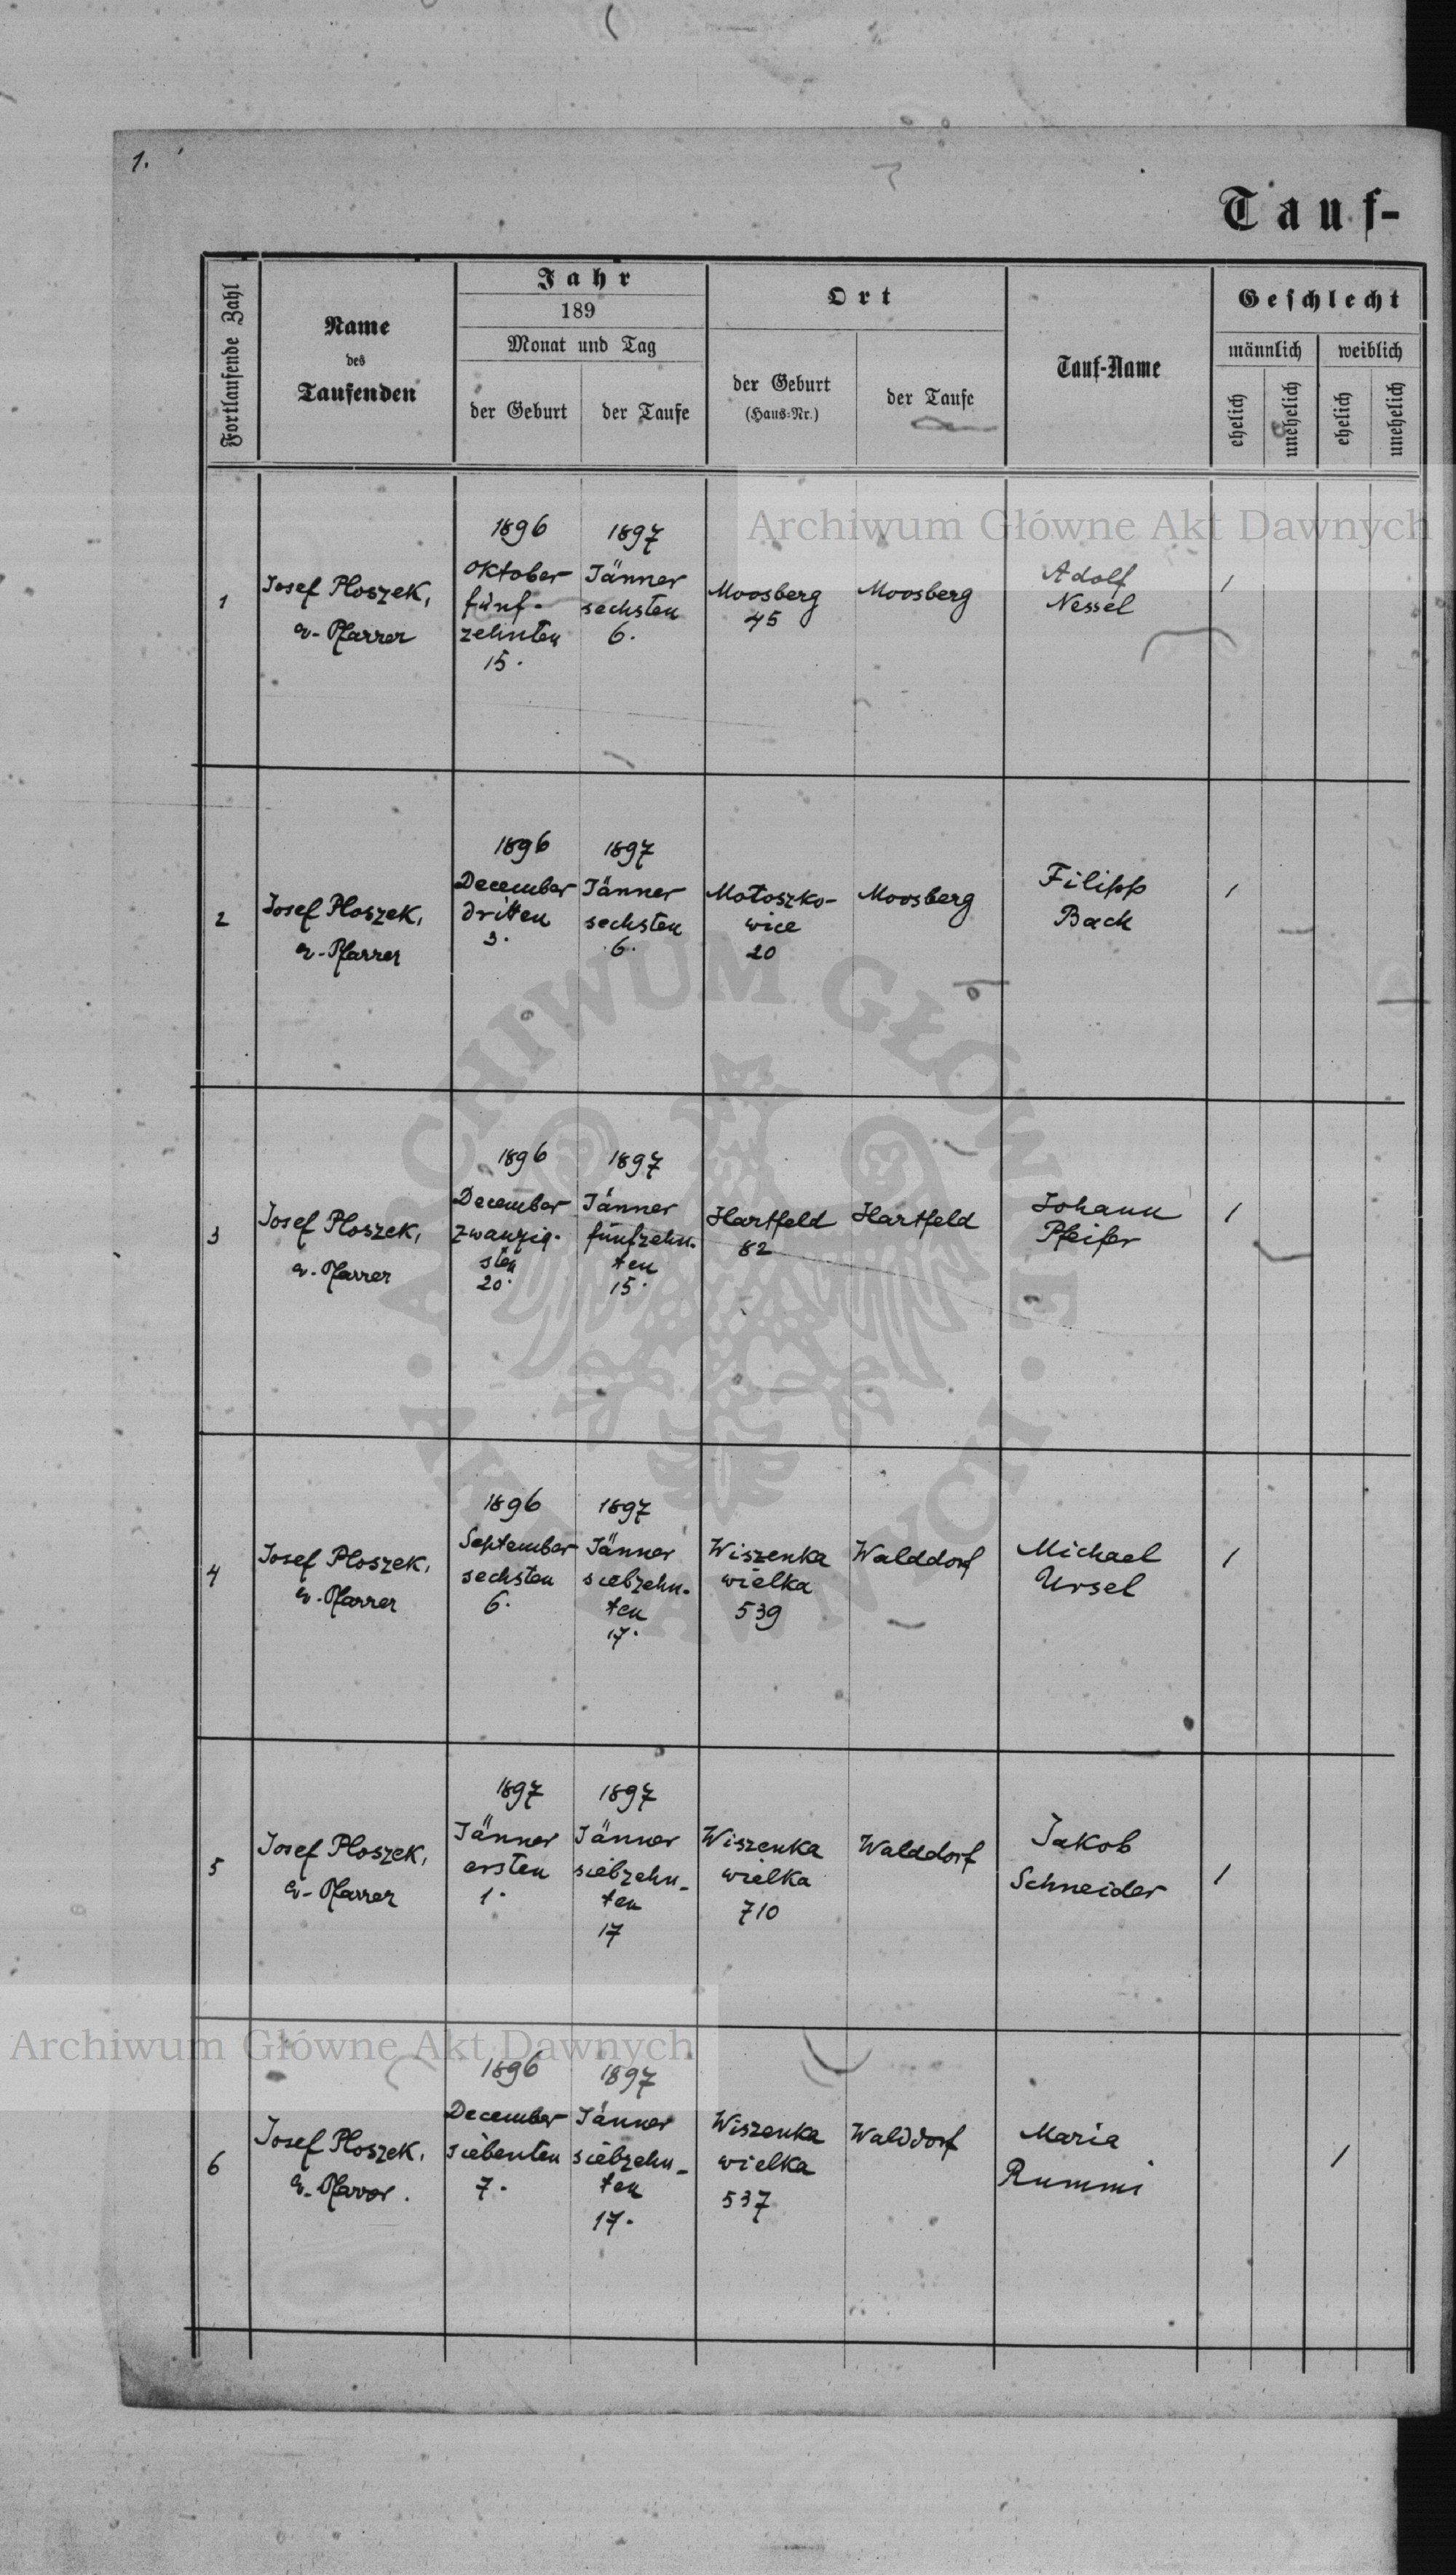 1.
Tauf-
Fortlaufende Zahl
Name
des
Taufenden
Jahr
189
Monat und Tag
der Geburt
der Taufe
Ort
der Geburt
(Haus-Nr.)
der Taufe
Tauf-Name
Geschlecht
männlich
weiblich
ehelich
unehelich
ehelich
unehelich
Archiwum Główne Akt Dawnych
1
Josef Ploszek,
ev-Pfarrer
1896
Oktober
fünf-
zehnten
15.
1897
Jänner
sechsten
6.
Moosberg
45
Moosberg
Adolf
Nessel
1
2
Josef Ploszek,
ev-Pfarrer
1896
December
dritten
3.
1897
Jänner
sechsten
6.
Motoszko-
wice
20
Moosberg
Filipp
Bach
1
ARCHIWUM GŁÓWNE
AKT DAWNYCH
3
Josef Ploszek,
ev-Pfarrer
1896
December
zwanzig-
sten
20.
1897
Jänner
fünfzehn-
ten
15.
Hartfeld
82
Hartfeld
Johann
Pfeifer
1
4
Josef Ploszek,
ev-Pfarrer
1896
September
sechsten
6.
1897
Jänner
siebzehn-
ten
17.
Wiszenka
wielka
539
Walddorf
Michael
Ursel
1
5
Josef Ploszek,
ev-Pfarrer
1897
Jänner
ersten
1.
1897
Jänner
siebzehn-
ten
17
Wiszenka
wielka
710
Walddorf
Jakob
Schneider
1
Archiwum Główne Akt Dawnych
6
Josef Ploszek,
ev-Pfarrer.
1896
December
siebenten
7.
1897
Jänner
siebzehn-
ten
17.
Wiszenka
wielka
537
Walddorf
Maria
Rummi
1